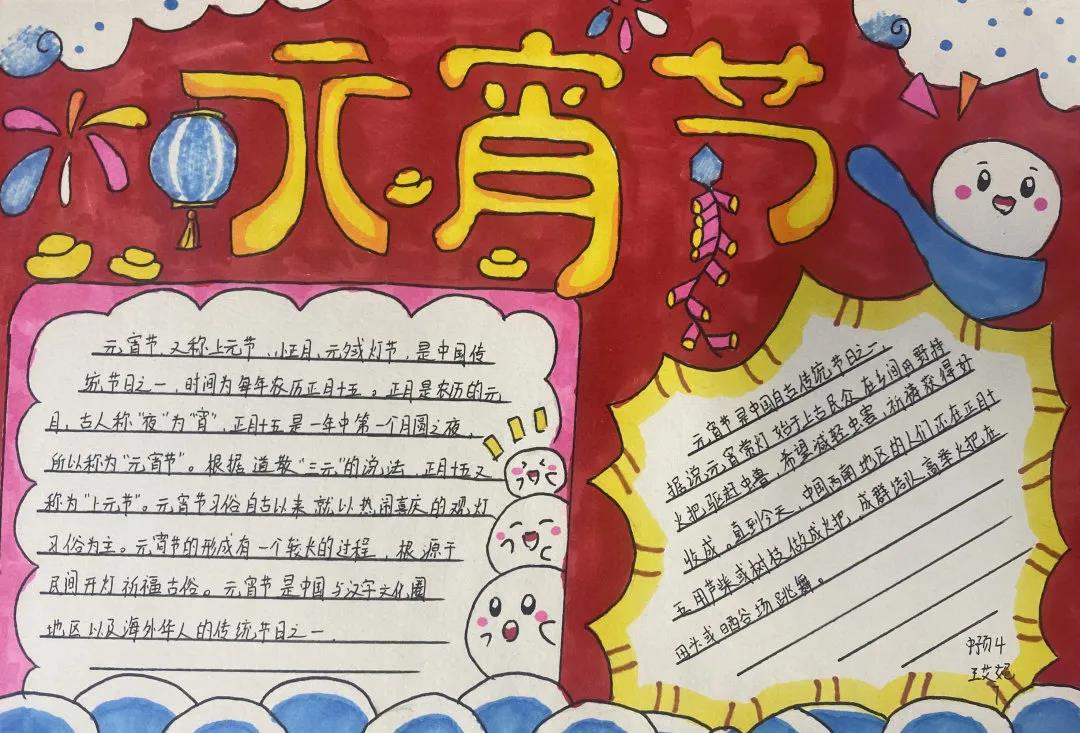 元宵节
元宵节，又称上元节、小正月、元夕或灯节，是中国传
统节日之一，时间为每年农历正月十五。正月是农历的元
月，古人称"夜"为"宵"，正月十五是一年中第一个月圆之夜，
所以称为"元宵节"。根据道教"三元"的说法，正月十五又
称为"上元节"。元宵节习俗自古以来就以热闹喜庆的观灯
习俗为主。元宵节的形成有一个较长的过程，根源于
民间开灯祈福古俗。元宵节是中国与汉字文化圈
地区以及海外华人的传统节日之一.
元宵节是中国自古传统节日之一，
据说元宵赏灯始于上古民众在乡间田野持
火把驱赶虫兽，希望减轻虫害，祈祷获得好
收成。直到今天，中国西南地区的人们还在正月十
五用芦柴或树枝做成火把，成群结队高举火把在
田头或晒谷场跳舞。